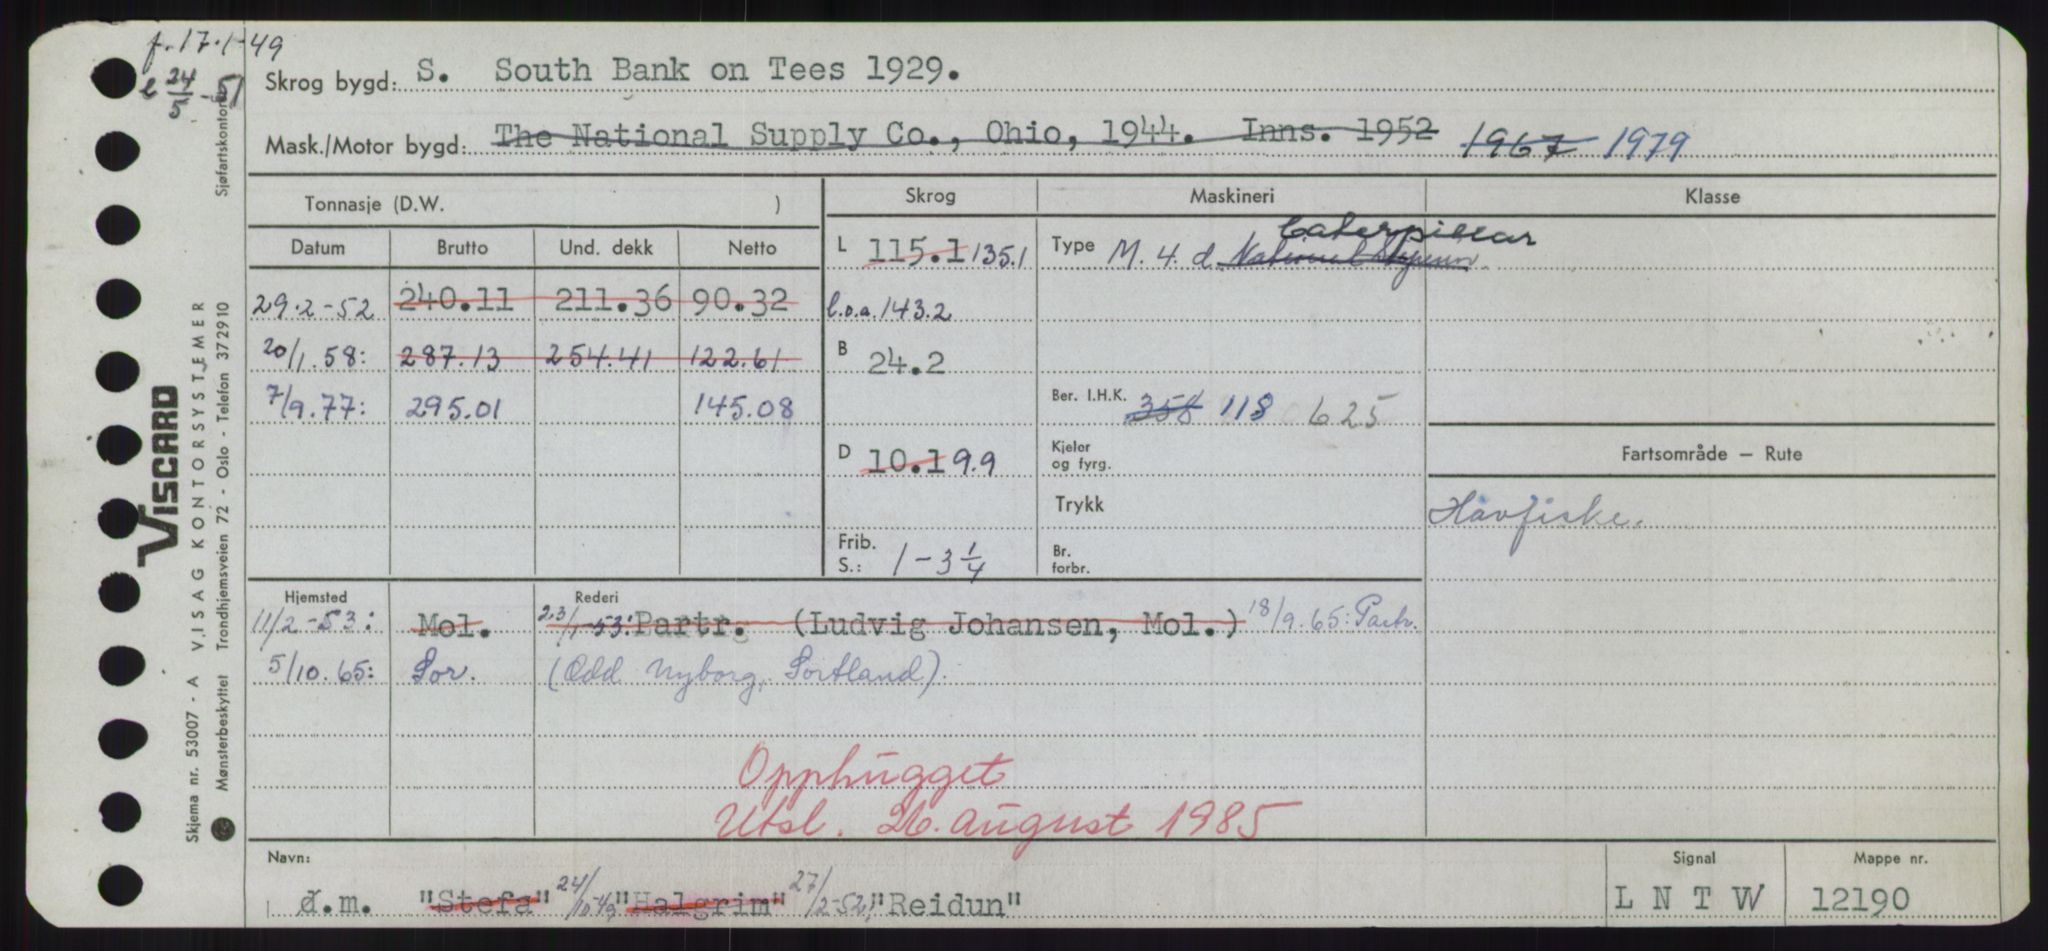 f. 17.1-49
e 24/5 - 51
Skrog bygd: S. South Bank on Tees 1929.
Mask./Motor bygd: The National Supply Co., Ohio, 1944. Inns. 1952 1967 1979
Tonnasje (D.W. )
Skrog
Maskineri
Klasse
Datum Brutto Und. dekk Netto
29.2-52 240.11 211.36 90.32
20/1.58: 287.13 254.41 122.61
7/9.77: 295.01 145.08
L 115.1 135.1
l.o.a. 143.2
B 24.2
D 10.1 9.9
Frib. S.: 1-3 1/4
Caterpillar
Type M. 4. d. National
Ber. I.H.K. 358 118 625
Kjeler og fyrg.
Trykk
Br. forbr.
Fartsområde – Rute
Havfiske.
Hjemsted Rederi
11/2-53: Mol. 23/1-53: Partr. (Ludvig Johansen, Mol.) 18/9.65: Partr.
5/10.65: Sor. (Odd Nyborg, Sortland).
Opphugget
Utsl. 26. august 1985
Navn: Signal Mappe nr.
d.m. "Stefa" 24/10-49 "Halgrim" 27/2-52 "Reidun" LNTW 12190
VISCARD
VISAG KONTORSYSTEMER
Sjøfartskontoret
Skjema nr. 53007 - A
Mønsterbeskyttet Trondhjemsveien 72 - Oslo - Telefon 372910